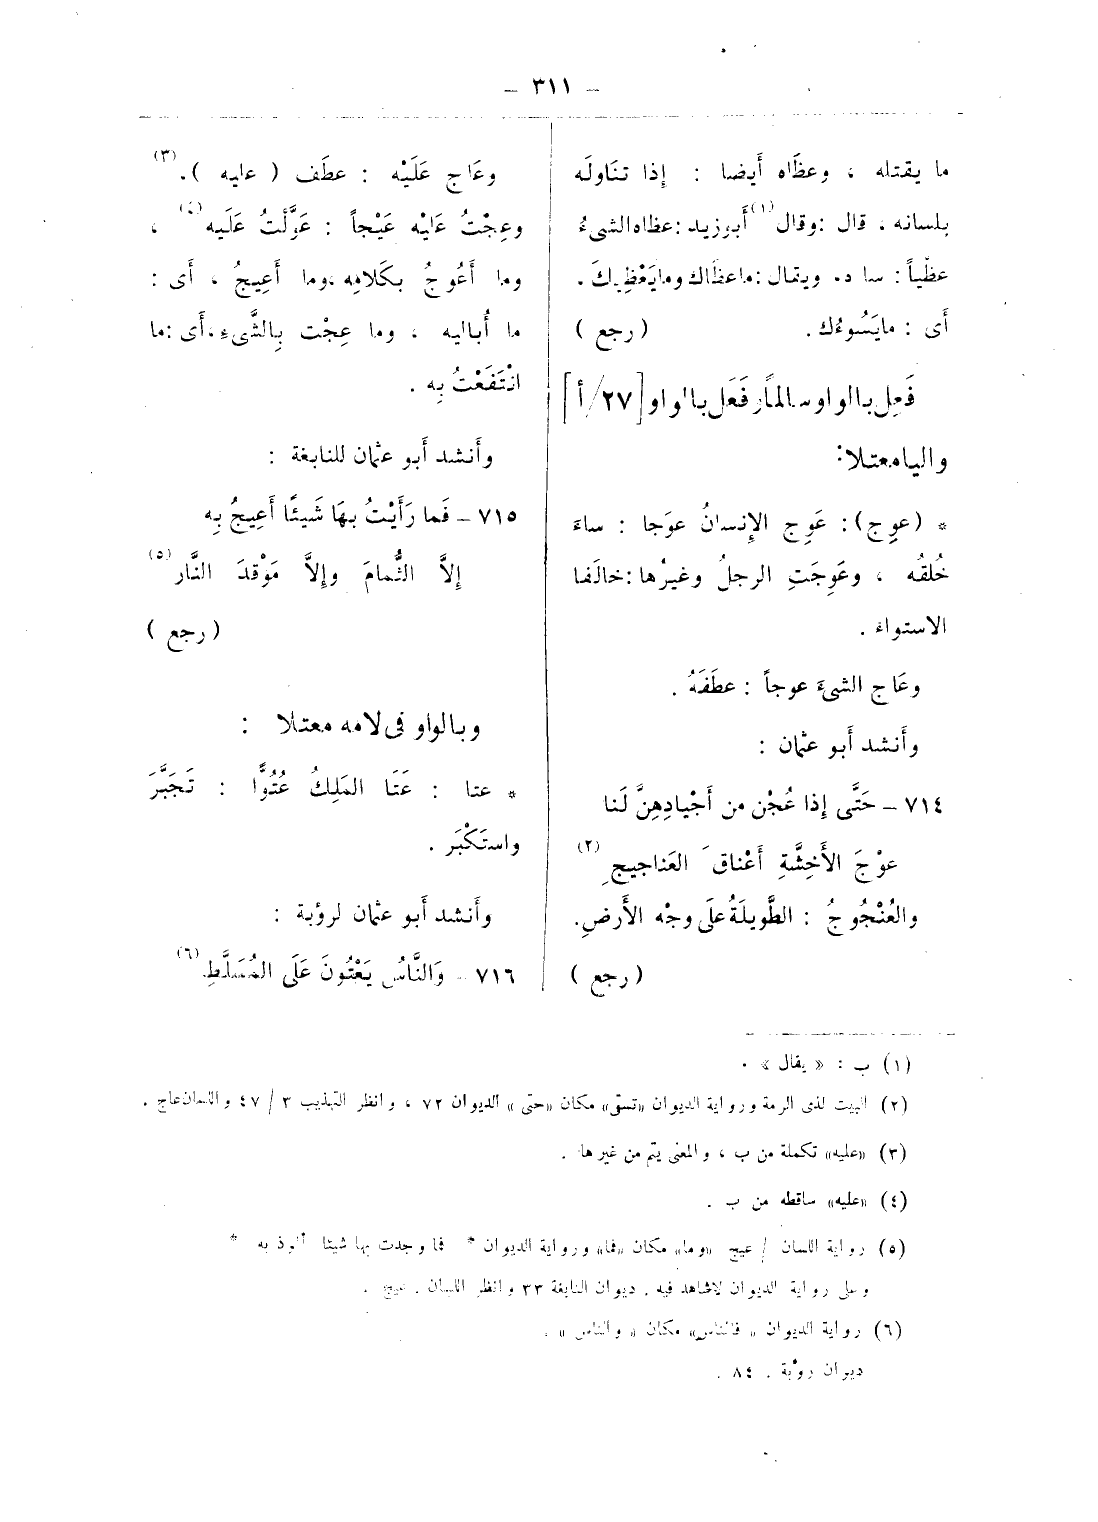 – ٣١١ –
ما يقتله ، وعظَاه أَيضا : إِذا تنَاولَه
بلسانه ، قال : وقال (١) أَبو زيد : عظاه الشىءُ
عظْياً : ساءه . ويقال : ما عظَاك وما يَعْظِيكَ .
أَى : ما يَسُوءُك . ( رجع )
فَعِل بالواو سالمًا وفَعَل بالواو [٢٧/أ]
والياء معتلا :
* (عوج) : عَوِج الإِنسانُ عوَجا : ساءَ
خُلقُه ، وعَوِجَتِ الرجلُ وغيرُها : خالَفا
الاستواء .
وعَاج الشىءَ عوجاً : عطَفَهُ .
وأَنشد أَبو عثمان :
٧١٤ – حَتَّى إِذا عُجْن من أَجْيادِهِنَّ لَنا
عوْجَ الأَخِشَّةِ أَعْناقَ العَناجيجِ (٢)
والعُنْجُوجُ : الطَّويلَةُ علَى وجْه الأَرضِ .
( رجع )
وعَاج عَلَيْه : عطَف ( عليه ) . (٣)
وعِجْتُ عَلَيْه عَيْجاً : عَوَّلْتُ عَلَيه (٤) ،
وما أَعُوجُ بكَلامِه ، وما أَعِيجُ ، أَى :
ما أُباليه ، وما عِجْت بِالشَّىءِ ، أَى : ما
انْتَفَعْتُ بِه .
وأَنشد أَبو عثمان للنابغة :
٧١٥ – فَما رَأَيْتُ بهَا شَيئًا أَعِيجُ بِه
إِلاَّ الثُّمامَ وإِلاَّ مَوْقدَ النَّار (٥)
( رجع )
وبالواو فى لامه معتلا :
* عتا : عَتَا المَلِكُ عُتُوًّا : تَجَبَّرَ
واستَكْبَر .
وأَنشد أَبو عثمان لرؤبة :
٧١٦ – وَالنَّاسُ يَعْتُونَ عَلَى المُسَلَّطِ (٦)
(١) ب : « يقال » .
(٢) البيت لذى الرمة ورواية الديوان «تسق» مكان «حتى» الديوان ٧٢ ، وانظر التهذيب ٣ / ٤٧ واللسان عاج .
(٣) «عليه» تكملة من ب ، والمعنى يتم من غيرها .
(٤) «عليه» ساقطه من ب .
(٥) رواية اللسان / عيج «وما» مكان «فما» ورواية الديوان * فما وجدت بها شيئا ألوذ به *
وعلى رواية الديوان لا شاهد فيه . ديوان النابغة ٣٣ وانظر اللسان . عيج .
(٦) رواية الديوان « فالناس» مكان « والناس » .
ديوان رؤبة . ٨٤ .